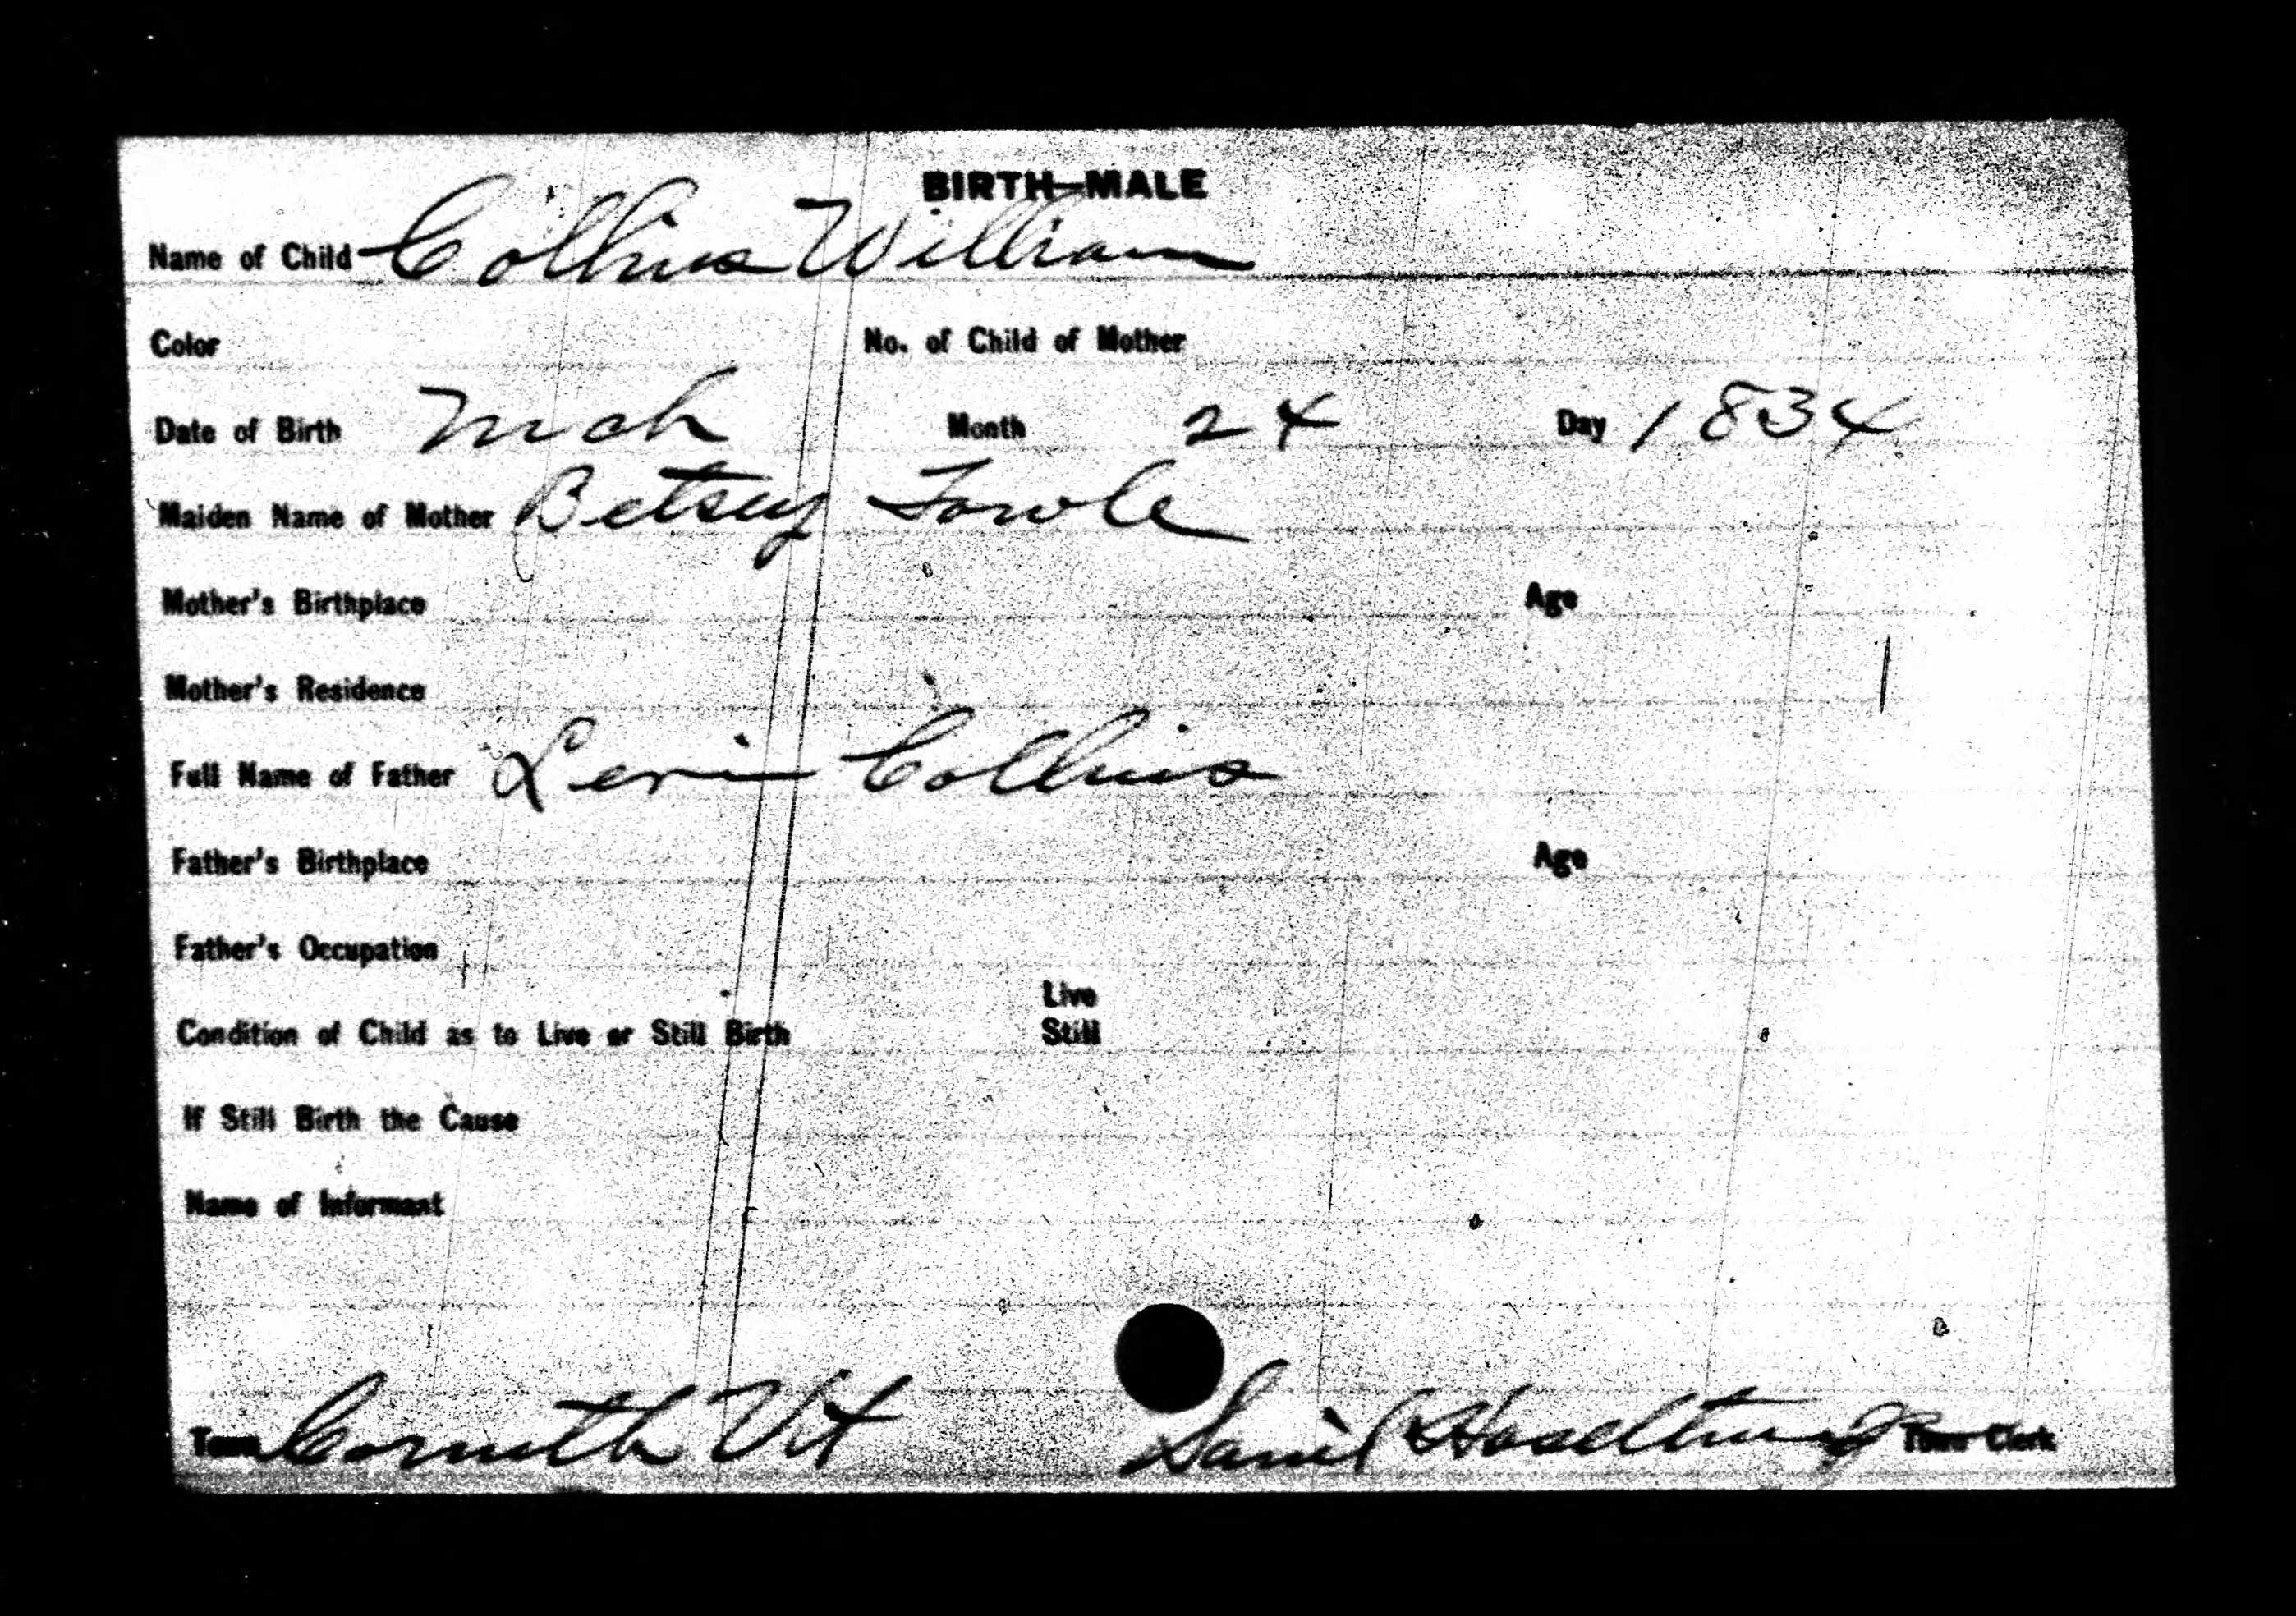 BIRTH—MALE
Name of Child Collins William
Color No. of Child of Mother
Date of Birth Mch Month 24 Day 1834
Maiden Name of Mother Betsey Fowle
Mother's Birthplace Age
Mother's Residence
Full Name of Father Levi Collins
Father's Birthplace Age
Father's Occupation
Live
Condition of Child as to Live or Still Birth Still
If Still Birth the Cause
Name of Informant
Town Corinth Vt Town Clerk